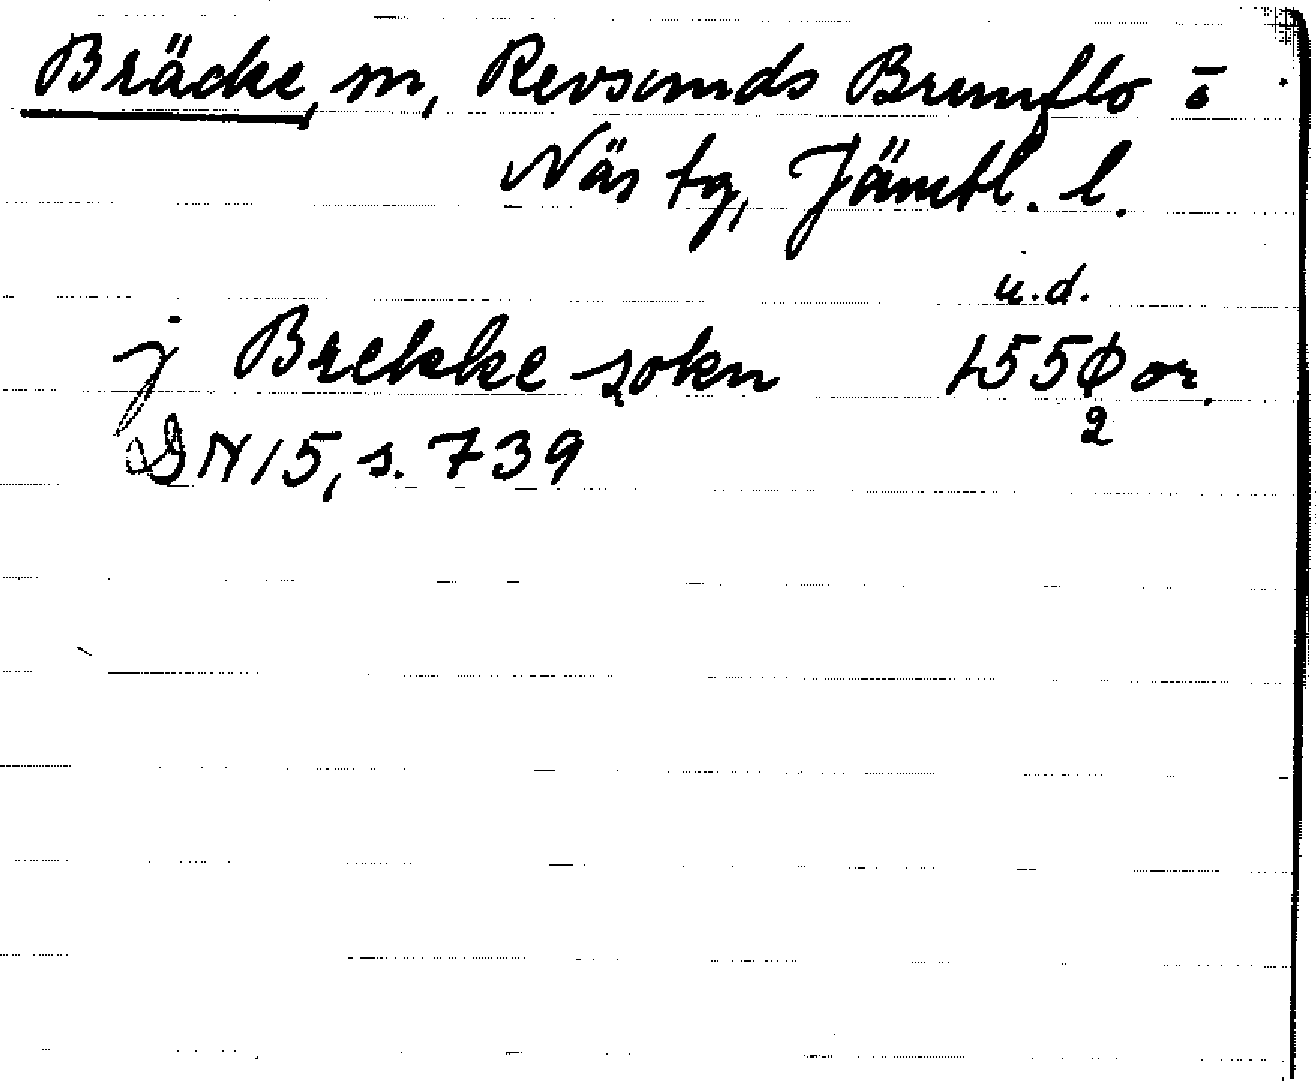 Bräcke, sn, Revsunds Brunflo o
Näs tg, Jämtl. l.
u.d.
j Brekke sokn 1550 or.
2
DN 15, s. 739